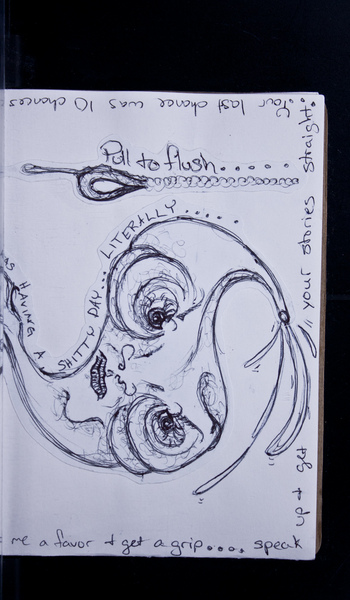 Pull to flush......
AS HAVING A SHITTY DAY... LITERALLY......
me a favor + get a grip.... speak
up + get your stories straight:
Your last chance was 10 chances